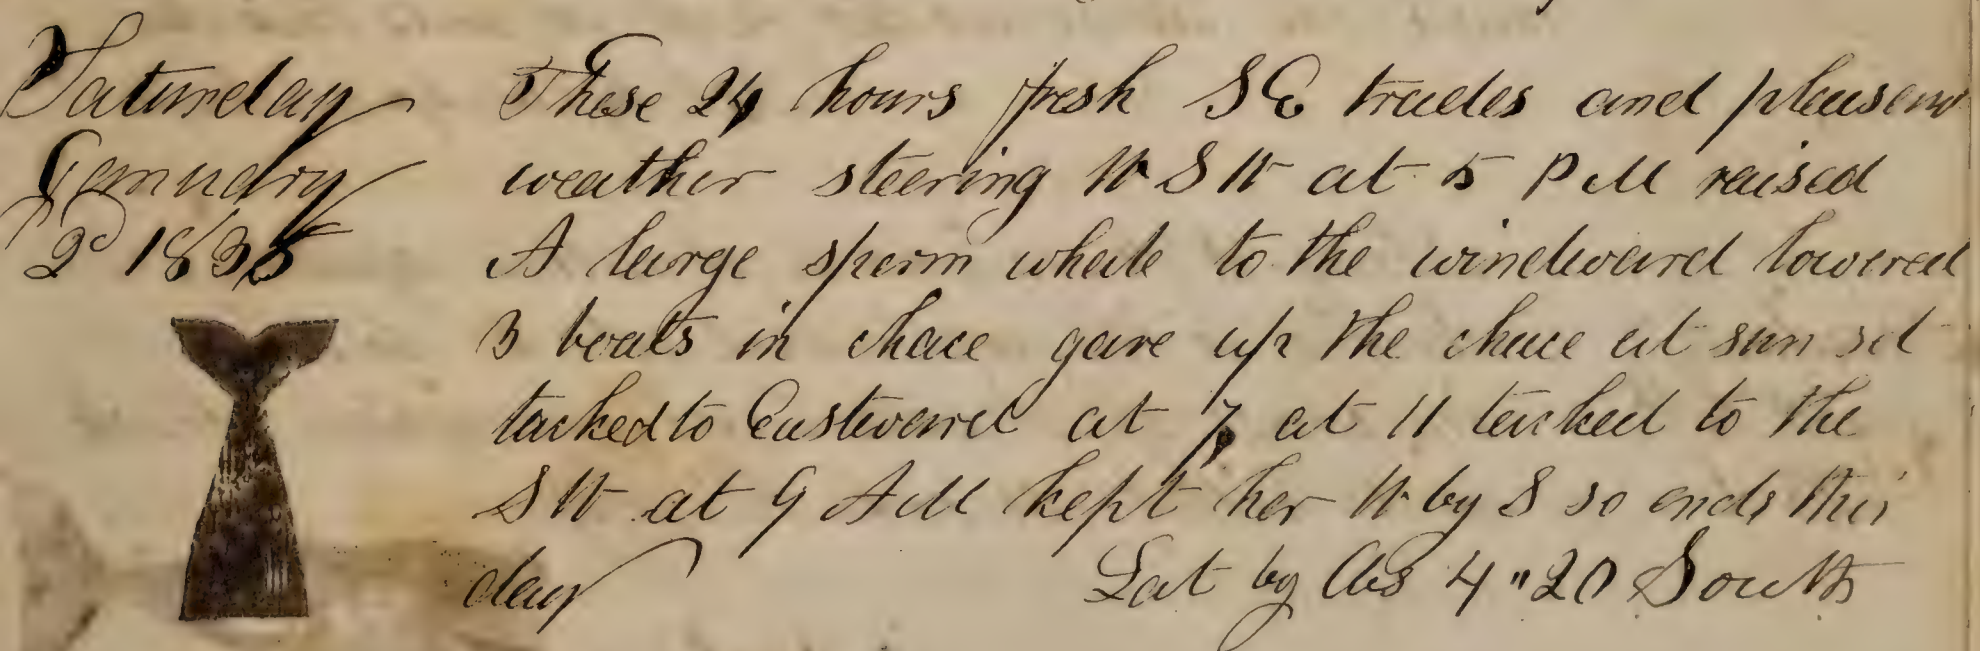 Saturday
January
2d 1835
These 24 hours fresh S E trades and pleasant
weather steering W S W at 5 P M raised
A large sperm whale to the windward lowered
3 boats in chace gave up the chace at sun set
tacked to Eastward at 7, at 11 tacked to the
S W at 9 A M kept her W by S so ends this
day Lat by Obs 4 "20 South